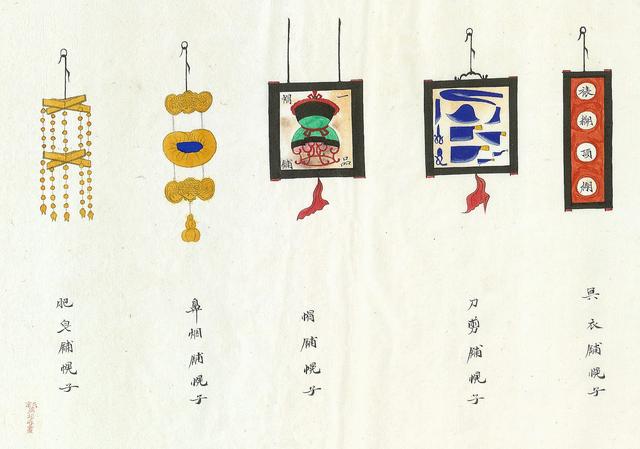 頂
具衣舖幌子
刀剪舖幌子
一品
帽舖
帽舖幌子
鼻烟舖幌子
肥皂舖幌子